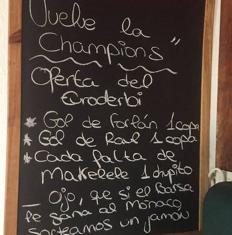 Vuelve la
Champions"
Oferta del
Euroderbi
* Gol de Forlán 1 copa
* Gol de Raul 1 copa
* Cada falta de
Makelele 1 chupito
— Ojo, que si el Barsa
le gana al Mónaco
sorteamos un jamón